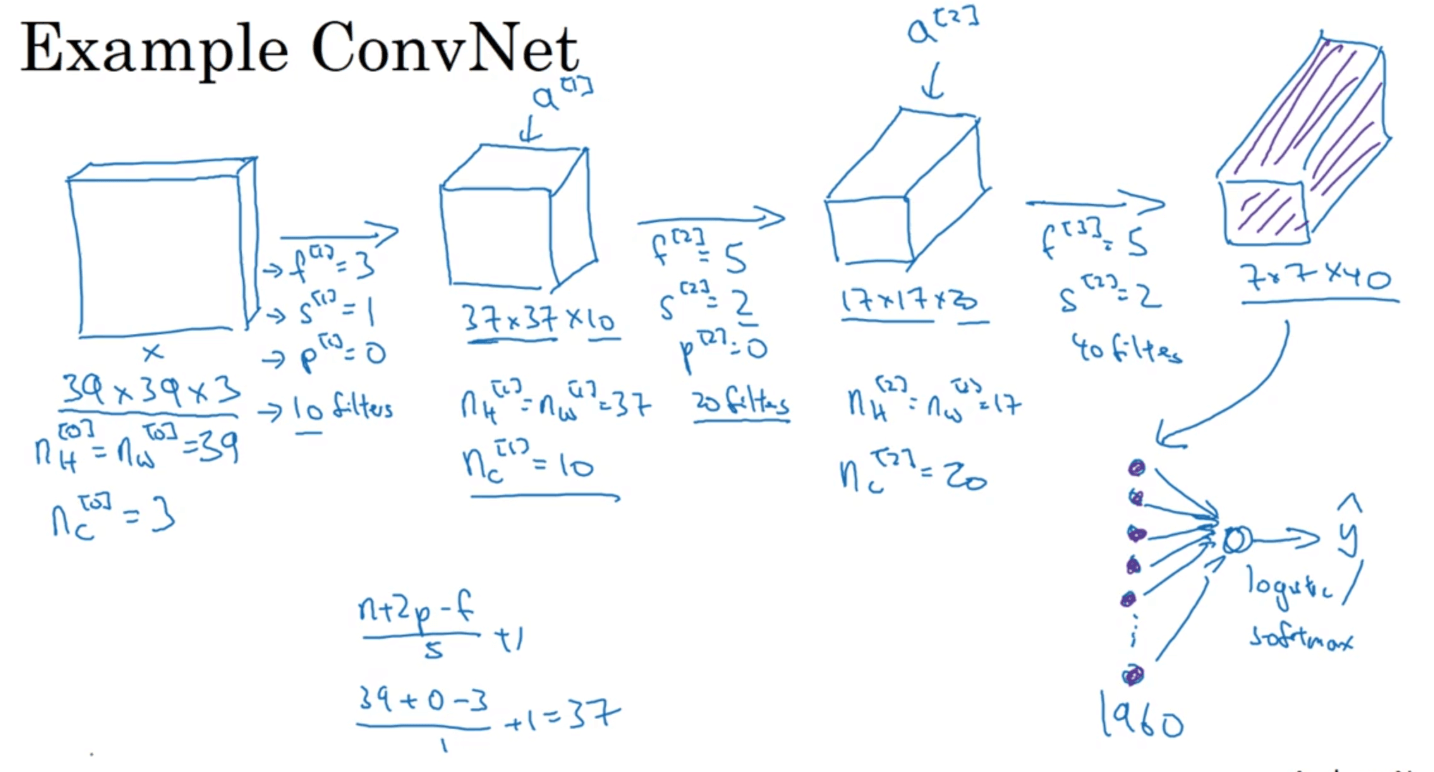 Example ConvNet
a^[1]
a^[2]
x
39×39×3
n_H^[0] = n_W^[0] = 39
n_C^[0] = 3
→ f^[1] = 3
→ s^[1] = 1
→ p^[1] = 0
→ 10 filters
37×37×10
n_H^[1] = n_W^[1] = 37
n_C^[1] = 10
f^[2] = 5
s^[2] = 2
p^[2] = 0
20 filters
17×17×20
n_H^[2] = n_W^[2] = 17
n_C^[2] = 20
f^[3] = 5
s^[3] = 2
40 filters
7×7×40
ŷ
logistic /
softmax
1960
n+2p-f
s
+1
39+0-3
1
+1=37